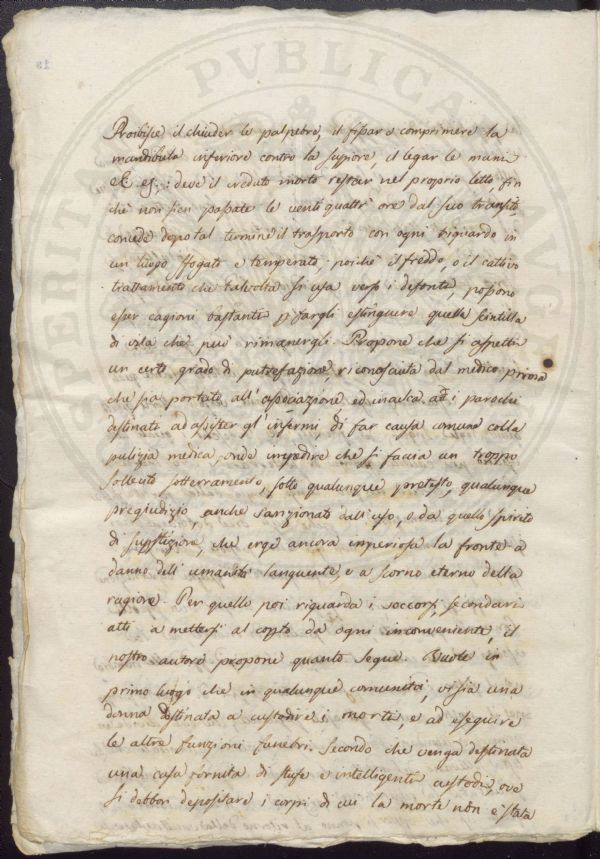 Proibisce il chiuder le palpebre, il fissar o comprimere la
mandibula inferiore contro la supiore, il legar le mani
&c. : deve il creduto morto restar nel proprio letto, fin
chè non sien passate le venti quattr' ore dal suo transito,
concede dopo tal termine il trasporto con ogni riguardo in
un luogo sfogato e temperato, poichè il freddo, o il cattivo
trattamento che talvolta si usa verso i defonti, possono
esser cagioni bastanti p fargli estinguere quella scintilla
di vita che può rimanergli. Propone che si aspetti
un certo grado di putrefazione, riconosciuta dal medico prima
che sia portato all' associazione ed inculca ad i parochi
destinati ad assister gl' infermi, di far causa comune colla
pulizia medica, onde impedire che si faccia un troppo
sollecito sotterramento, sotto qualunque pretesto, qualunque
pregiudizio, anche sanzionato dall' uso, o da quello spirito
di supstizione, che erge ancora imperiosa la fronte a
danno dell' umanità languente, e a scorno eterno della
ragione. Per quello poi riguarda i soccorsi secondari
atti a mettersi al copto da ogni inconveniente, il
nostro autore propone quanto segue. Vuole in
primo luogo che in qualunque comunità, vi sia una
donna destinata a custodire i morti, e ad eseguire
le altre funzioni funebri. Secondo che venga destinata
una casa fornita di stufe e intelligenti custodi, ove
si debbon depositare i corpi di cui la morte non è stata
PVBLICA